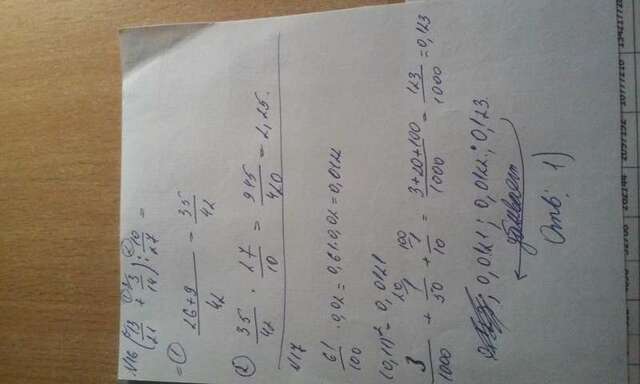 №16 (13/21 + 3/14) : 10/27 =
= ① (26+9)/42 = 35/42
② 35/42 · 27/10 = 945/420 = 2,25.
№17
61/100 · 0,02 = 0,61·0,02 = 0,0122
(0,11)² = 0,0121
3/1000 + 1/50 + 1/10 = (3+20+100)/1000 = 123/1000 = 0,123
; 0,0121 ; 0,0122 ; 0,123
убывает
Отв: 1)